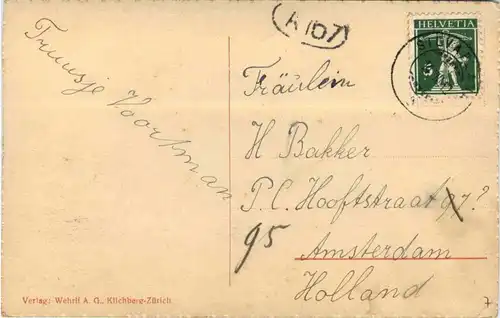 A 107
HELVETIA
5
Truusje Voortman
Fräulein
H Bakker
P.C. Hooftstraat 97?
95
Amsterdam
Holland
Verlag: Wehrli A. G., Kilchberg-Zürich
7